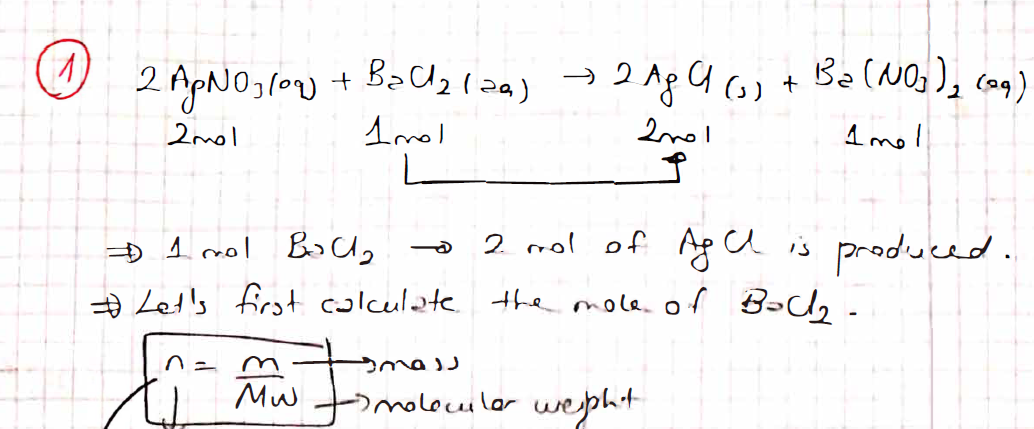 1
2 AgNO3(aq) + BaCl2(aq) → 2 AgCl(s) + Ba(NO3)2(aq)
2mol 1mol 2mol 1mol
⇒ 1 mol BaCl2 → 2 mol of AgCl is produced.
⇒ Let's first calculate the mole of BaCl2.
n = m → mass
Mw → molecular weight